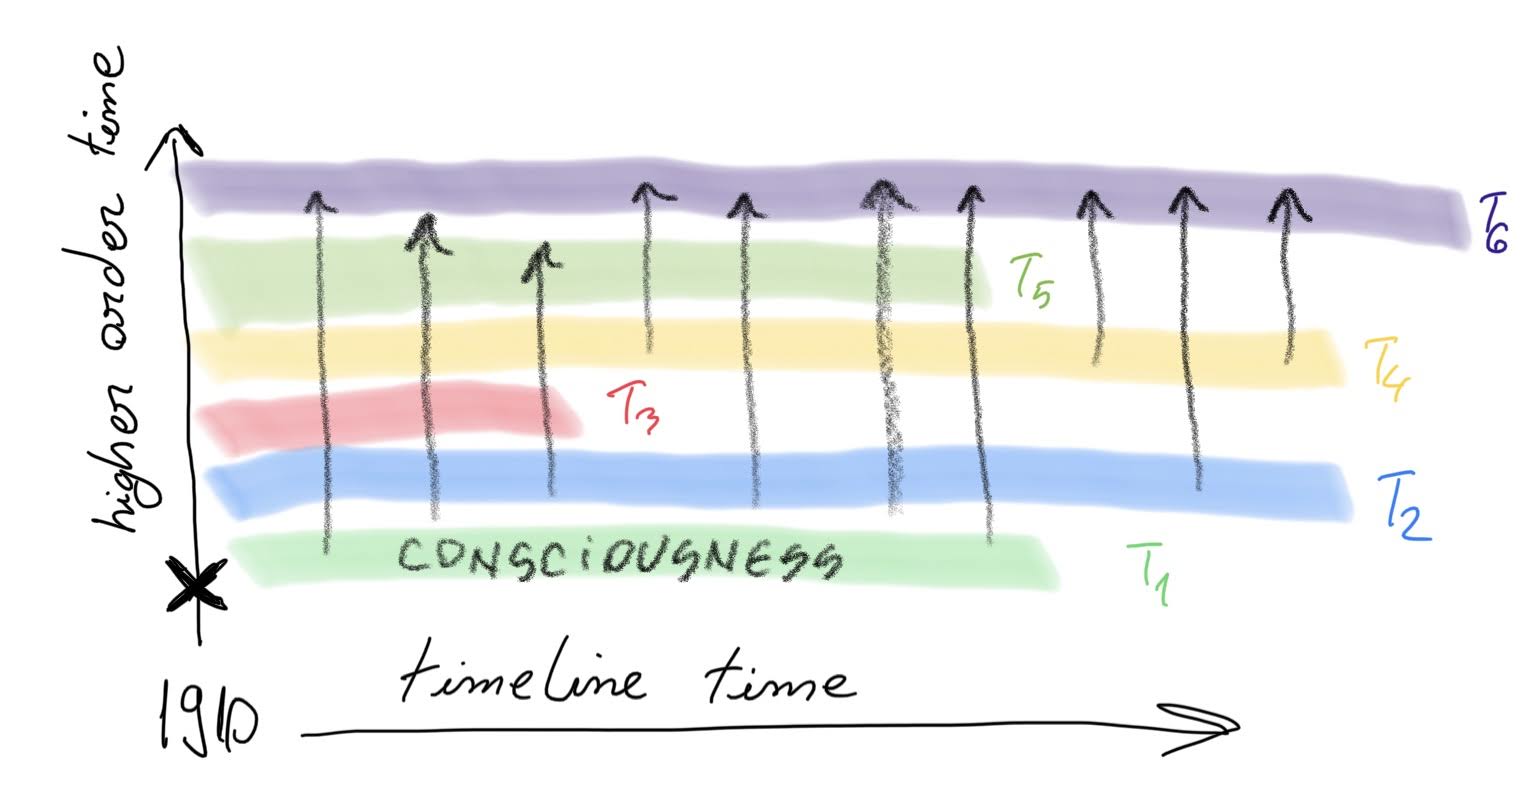 higher order time
T6
T5
T4
T3
T2
CONSCiOUSNESS
T1
timeline time
1910